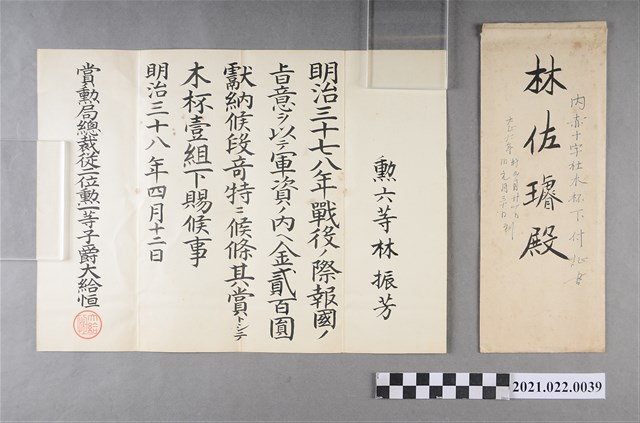 勲六等林振芳
明治三十七八年戰後ノ際報國ノ
旨意ヲ以テ軍資ノ內ヘ金貳百圓
獻納候段奇特ニ候條其賞トシテ
木杯壹組下賜候事
明治三十八年四月十二日
賞勲局總裁從二位勲一等子爵大給恒
林佐璿殿
內赤十字社木杯下付
2021.022.0039